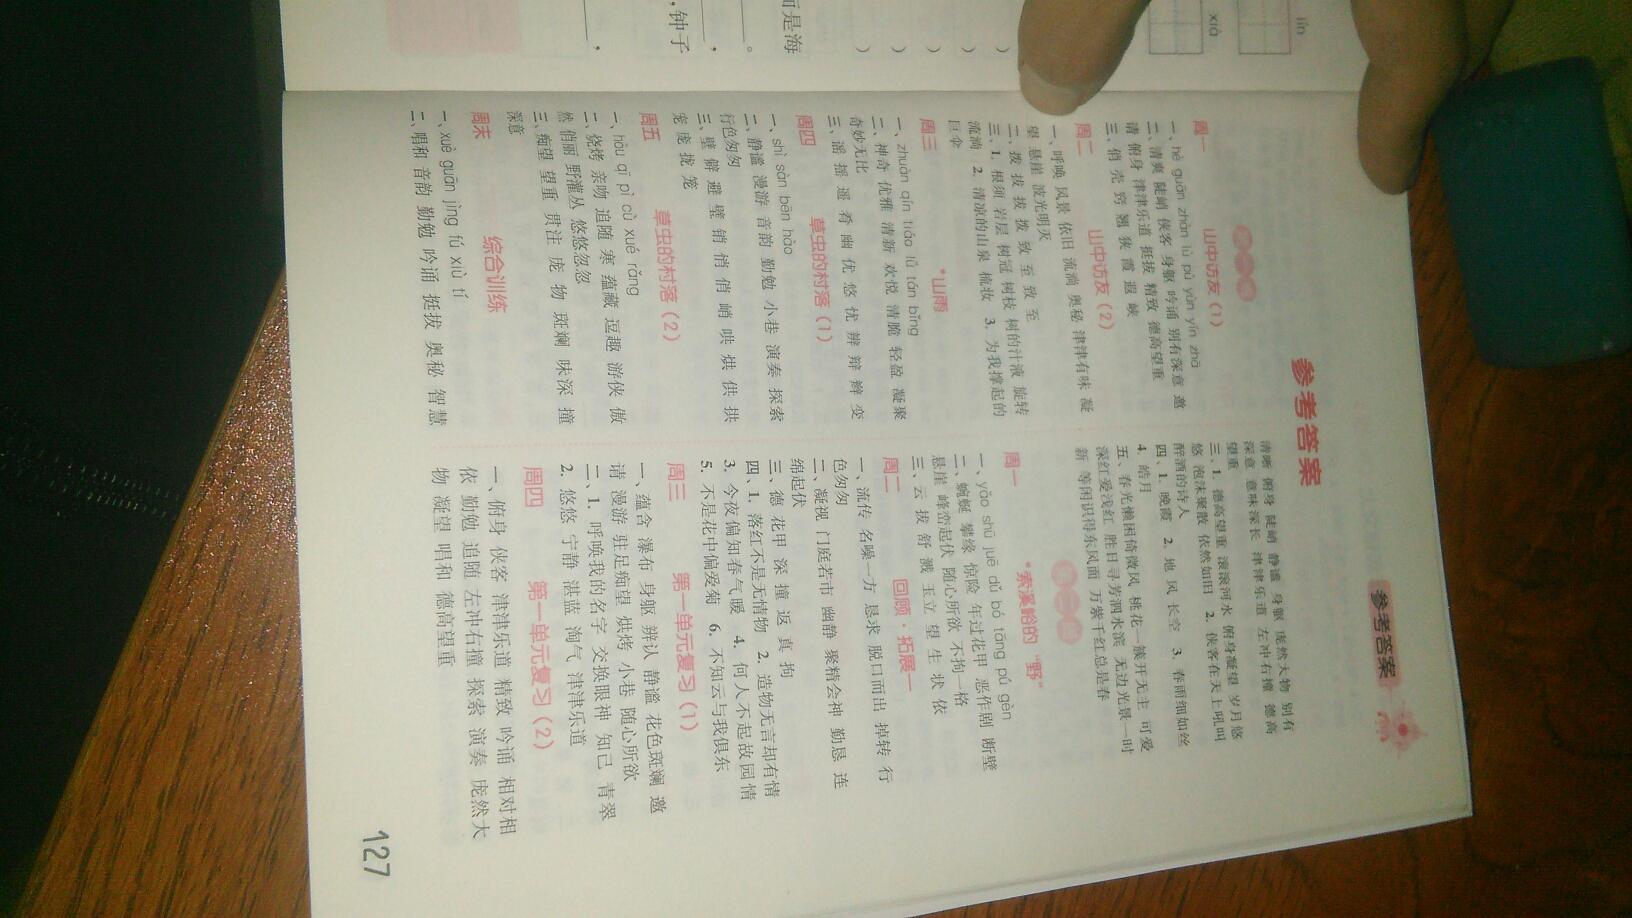 参考答案
参考答案
周一 山中访友(1)
一、hè guān zhàn lù pù yùn yín zhā
二、清爽 陡峭 侠客 身躯 吟诵 别有深意 邀
请 俯身 津津乐道 挺拔 精致 德高望重
三、俏 壳 窍 翘 狭 霞 遐 峡
周二 山中访友(2)
一、呼唤 风景 依旧 流淌 奥秘 津津有味 凝
望 悬崖 波光明灭
二、拨 拔 拔 拨 致 至 致 至
三、1. 根须 岩层 树冠 树枝 树的汁液 旋转
流淌 2. 清凉的山泉 梳妆 3. 为我撑起的
巨伞
周三 *山雨
一、zhuàn qín tiáo lǜ tán bīng
二、神奇 优雅 清新 欢悦 清脆 轻盈 凝聚
奇妙无比
三、谣 摇 遥 肴 幽 优 悠 忧 辨 辩 辫 变
周四 草虫的村落(1)
一、shì sàn bēn hào
二、静谧 漫游 音韵 勤勉 小巷 演奏 探索
行色匆匆
三、壁 僻 避 璧 销 悄 俏 峭 哄 烘 供 拱
宠 庞 拢 笼
周五 草虫的村落(2)
一、hōu qī pì cù xuē rǎng
二、烧烤 亲吻 追随 寒 蕴藏 逗趣 游侠 傲
然 俏丽 野灌丛 悠悠忽忽
三、痴望 望重 贯注 庞 物 斑斓 味深 撞
深意
周末 综合训练
一、xuè guān jìng fú xiù tí
二、唱和 音韵 勤勉 吟诵 挺拔 奥秘 智慧
清晰 俯身 陡峭 静谧 身躯 庞然大物 别有
深意 意味深长 津津乐道 左冲右撞 德高
望重
三、1. 德高望重 滚滚河水 俯身凝望 岁月悠
悠 泡沫聚散 依然如旧 2. 侠客在天上吼叫
醉酒的诗人
四、1. 晚霞 2. 地 风 长空 3. 春雨细如丝
4. 皓月
五、春光懒困倚微风 桃花一簇开无主 可爱
深红爱浅红 胜日寻芳泗水滨 无边光景一时
新 等闲识得东风面 万紫千红总是春
周一 *索溪峪的“野”
一、yāo shū juē dǔ bó tōng pú gèn
二、蜿蜒 攀缘 惊险 年过花甲 恶作剧 断壁
悬崖 峰峦起伏 随心所欲 不拘一格
三、云 拔 舒 溅 玉立 望 生 状 依
周二 回顾·拓展一
一、流传 名噪一方 恳求 脱口而出 掉转 行
色匆匆
二、凝视 门庭若市 幽静 聚精会神 勤恳 连
绵起伏
三、德 花甲 深 撞 返 真 拘
四、1. 落红不是无情物 2. 造物无言却有情
3. 今夜偏知春气暖 4. 何人不起故园情
5. 不是花中偏爱菊 6. 不知云与我俱东
周三 第一单元复习(1)
一、蕴含 瀑布 身躯 辨认 静谧 花色斑斓 邀
请 漫游 驻足痴望 烘烤 小巷 随心所欲
二、1. 呼唤我的名字 交换眼神 知己 青翠
2. 悠悠 宁静 湛蓝 淘气 津津乐道
周四 第一单元复习(2)
一、俯身 侠客 津津乐道 精致 吟诵 相对相
依 勤勉 追随 左冲右撞 探索 演奏 庞然大
物 凝望 唱和 德高望重
127
而是海
，钟子
。
，
，
lín
xiá